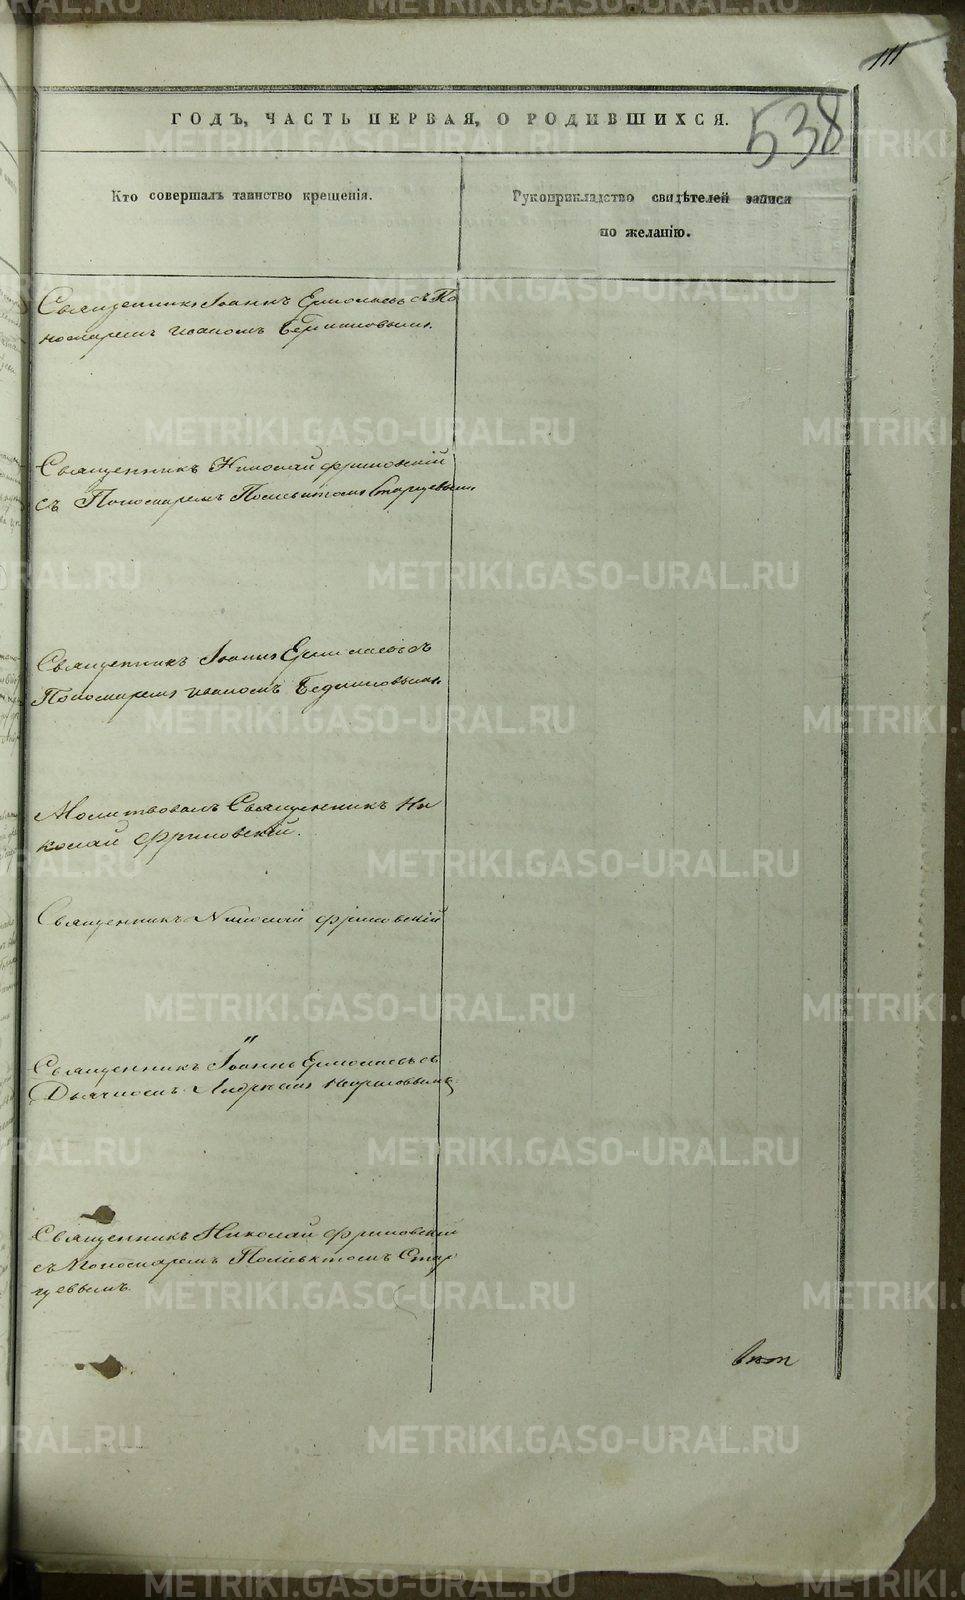 111
538
ГОДЪ, ЧАСТЬ ПЕРВАЯ, О РОДИВШИХСЯ.
Кто совершалъ таинство крещенія.
Рукоприкладство свидѣтелей записи
по желанію.
Священникъ Іоаннъ Ермолаевъ съ По
номаремъ Иваномъ
Священникъ Николай Фриновскій
съ Пономаремъ Поліевктомъ Старцевымъ
Священникъ Іоаннъ Ермолаевъ съ
Пономаремъ Иваномъ
Молитвовалъ Священникъ Ни
колай Фриновскій.
Священникъ Николай Фриновскій
Священникъ Іоаннъ Ермолаевъ съ
Дьячкомъ Андреемъ
Священникъ Николай Фриновскій
съ Пономаремъ Поліевктомъ Стар
цевымъ.
METRIKI.GASO-URAL.RU